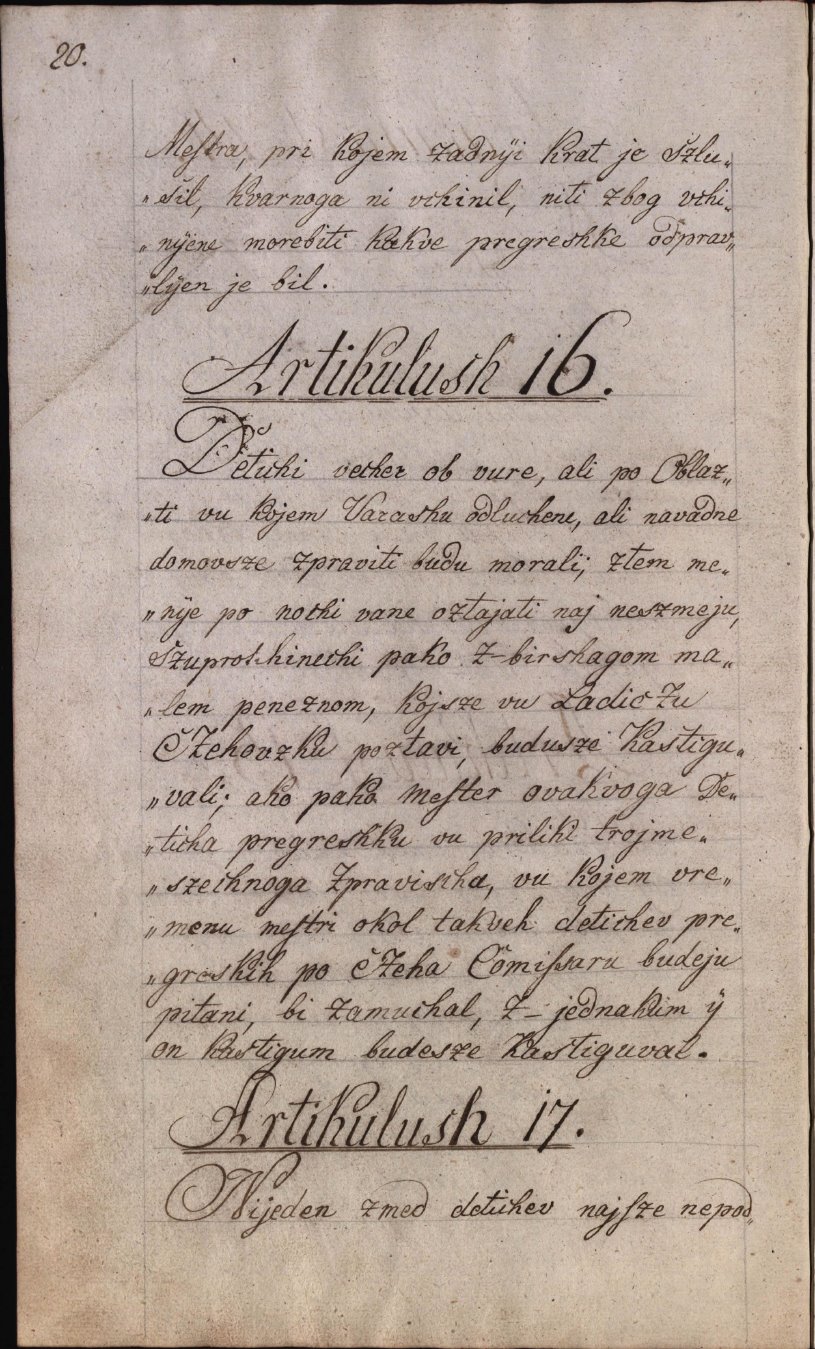 20.
Meſtra, pri kojem zadnÿi krat je szlu„
„sil, kvarnoga ni vchinil, niti zbog vchi„
„nÿene morebiti kakve pregreshke odprav„
„lÿen je bil.
Artikulush 16.
Detichi vecher ob vure, ali po Oblaz„
„ti vu kojem Varashu odluchene, ali navadne
domovsze zpraviti budu morali; ztem me„
„nÿe po nochi vane oztajati naj neszmeju,
Szuprotchinechi pako z–birshagom ma„
„lem peneznom, kojsze vu Ladiczu
Czehovzku poztavi, budusze Kastigu„
„vali; ako pako meſter ovakvoga De„
„ticha pregreshku vu priliki trojme„
„szechnoga Zpravischa, vu kojem vre„
„menu meſtri okol takveh detichev pre„
„greskih po Czeha Comiſsaru budeju
pitani, bi zamuchal, z–jednakum ÿ
on kastigum budesze Kastiguval.
Artikulush 17.
Nijeden zmed detichev najſze nepod„